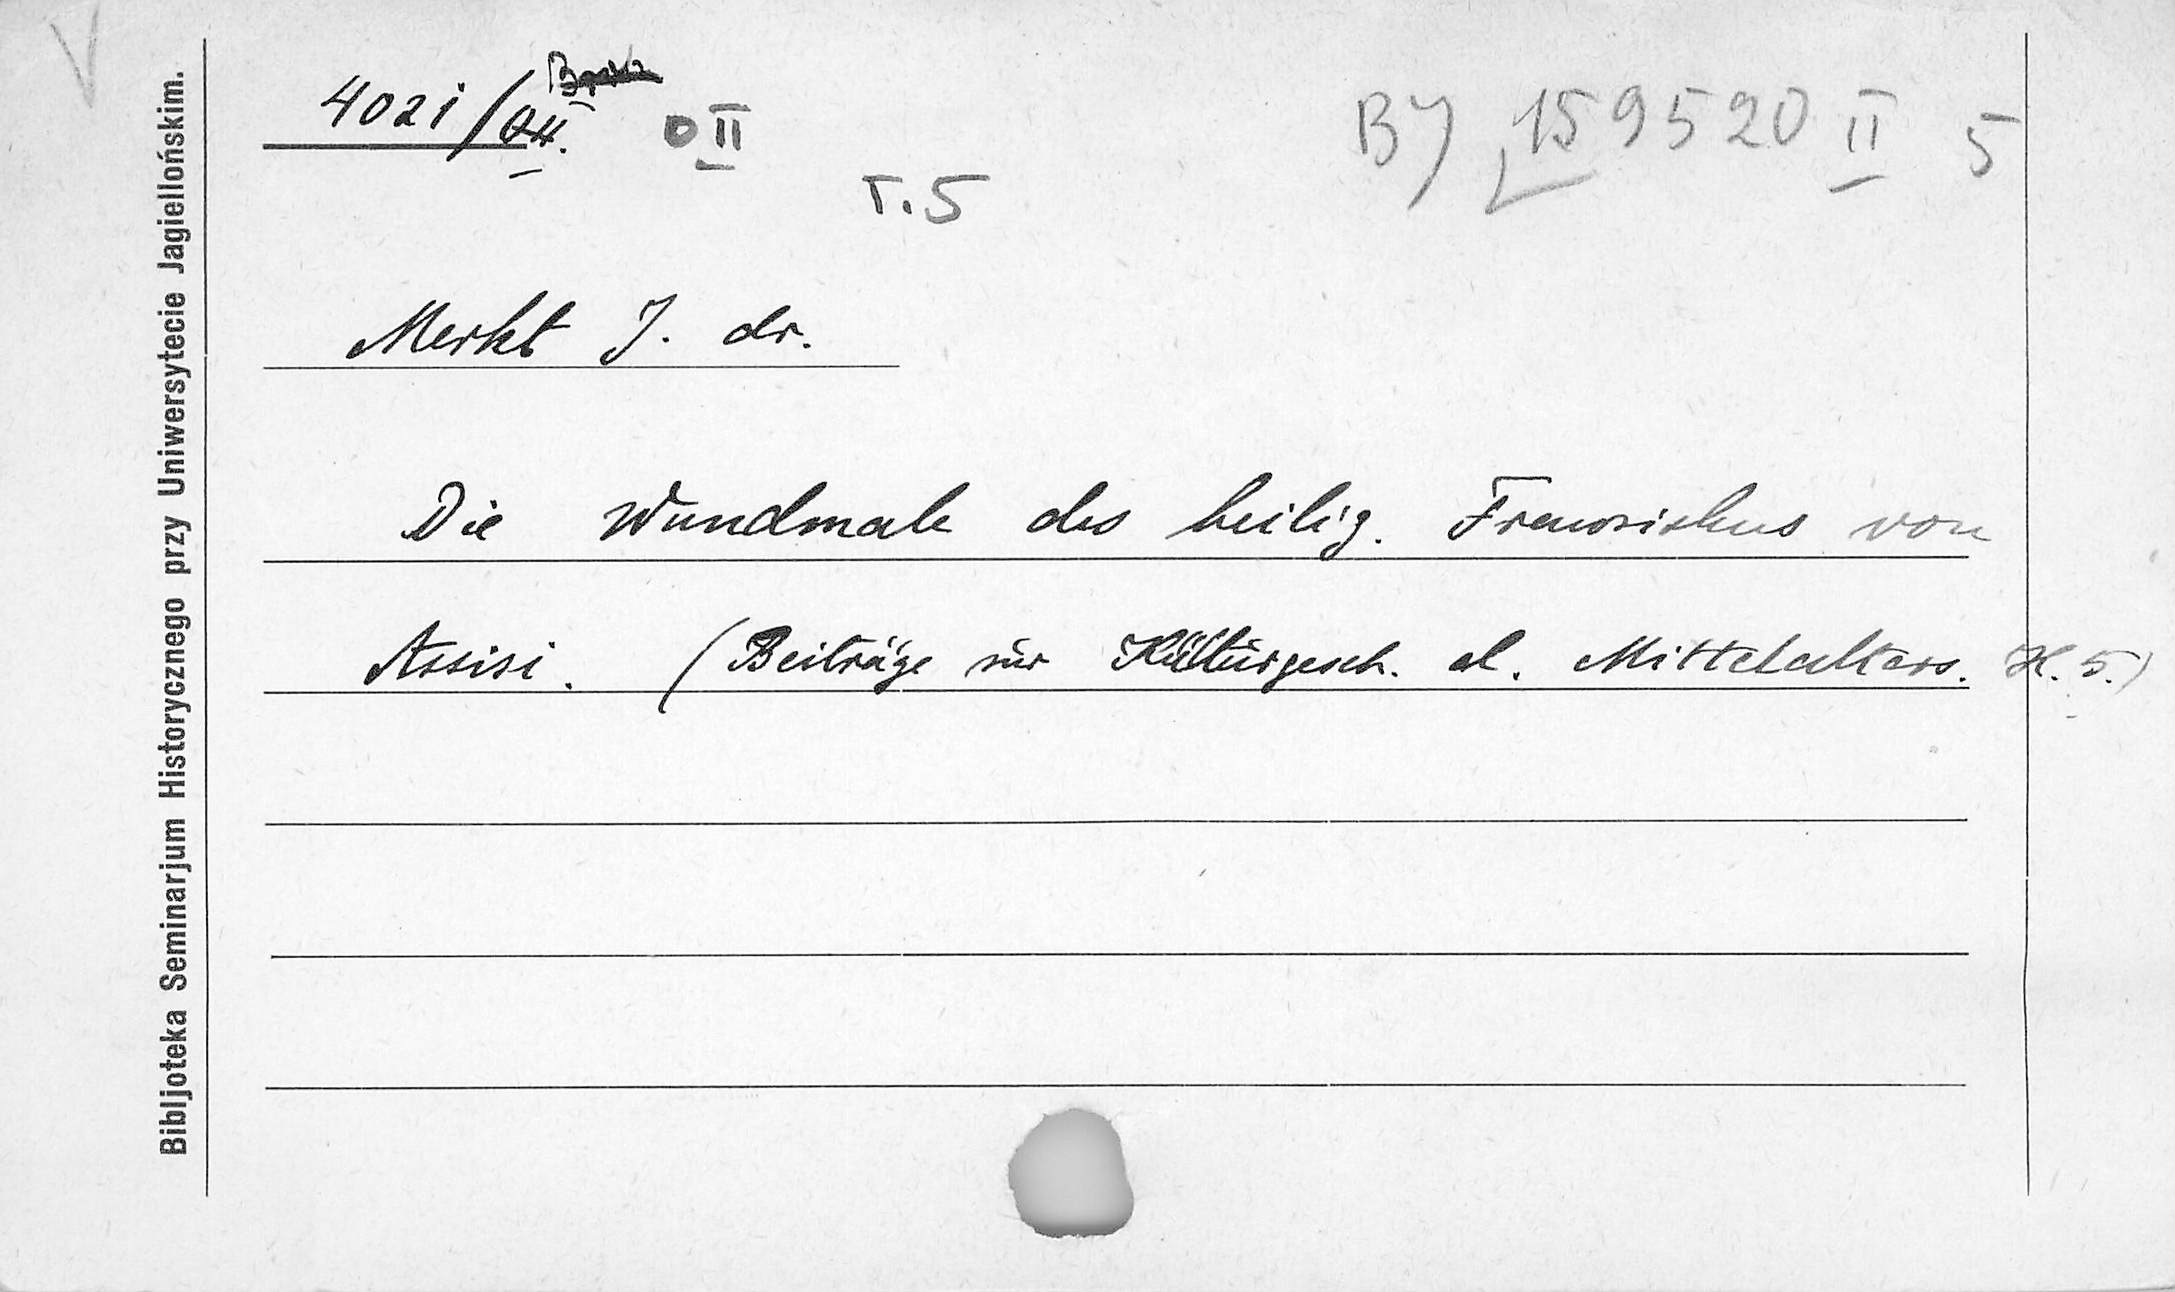 V
4021/
0 II
BJ 159520 II 5
T. 5
Merkt J. dr.
Die Wundmale des heilig. Franziskus von
Assisi. (Beiträge zur Kulturgesch. d. Mittelalters. H. 5.)
Bibljoteka Seminarjum Historycznego przy Uniwersytecie Jagiellońskim.